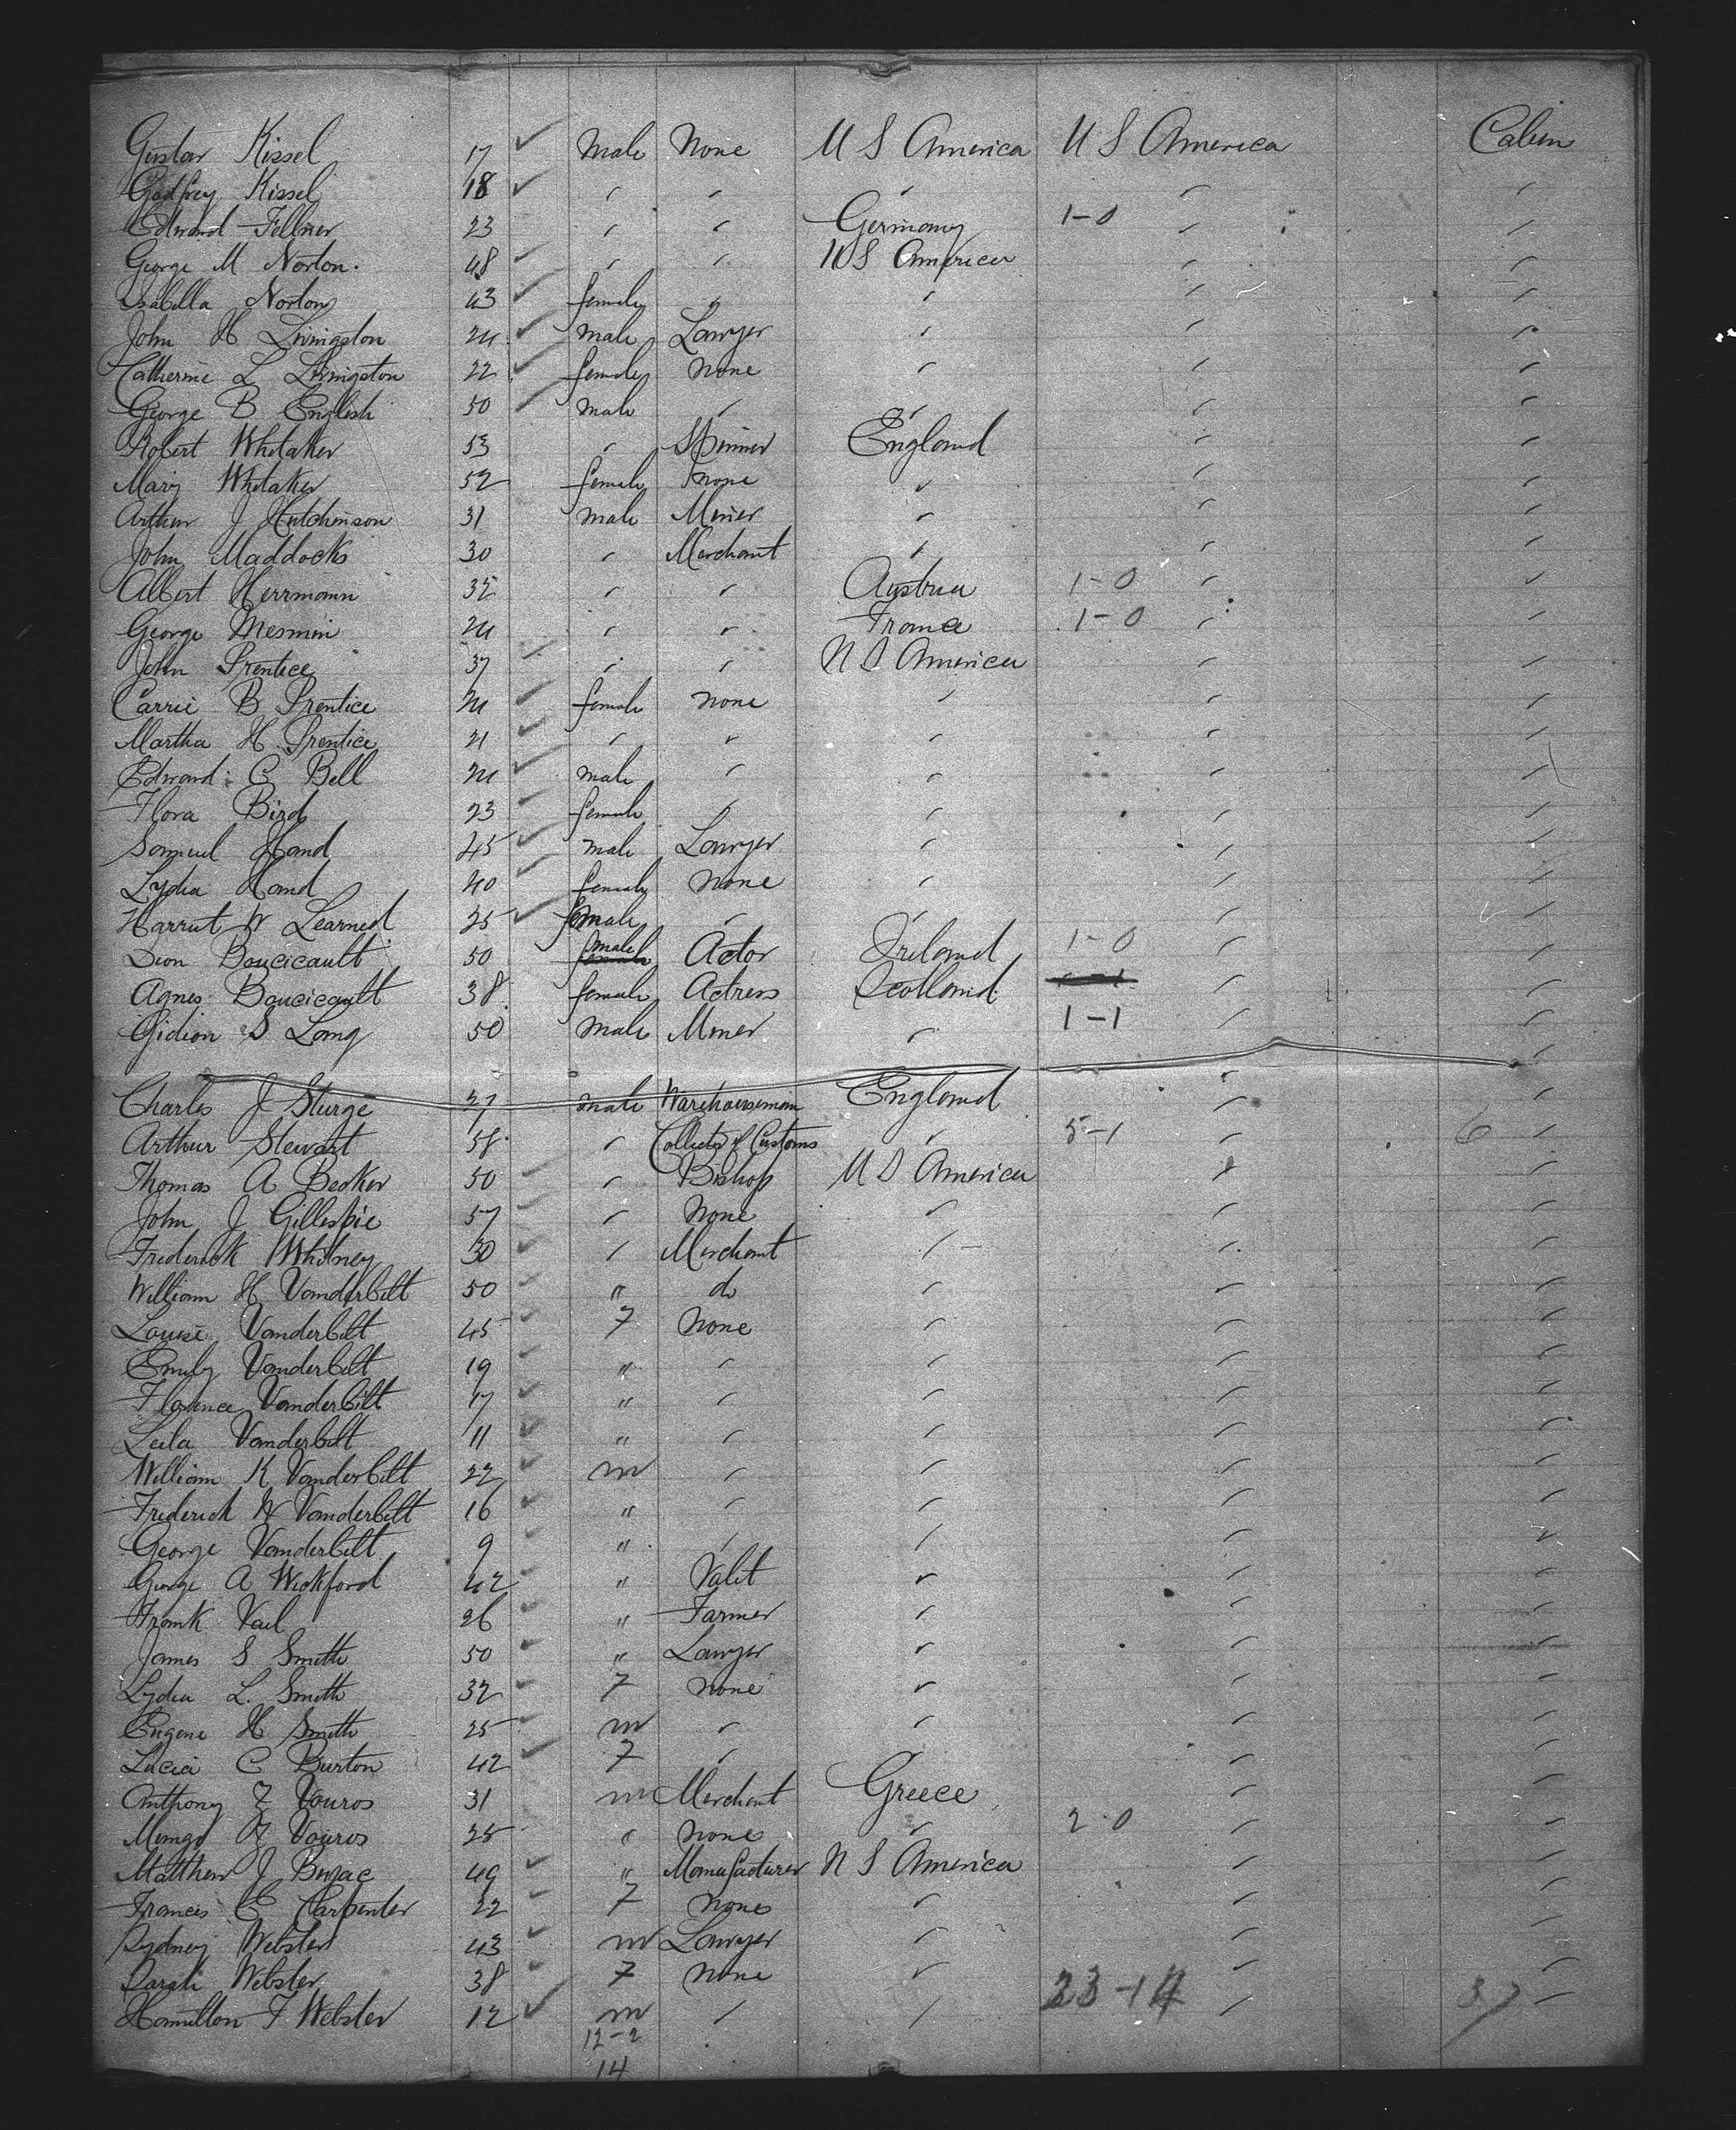 Gustav Kissel 17 ✓ Male None U S America U S America Cabin
Godfrey Kissel 18 ✓ " " " " "
Edward Fellner 23 " " Germany 1-0 " "
George M Norton. 48 ✓ " " U S America " "
Isabella Norton 43 ✓ female " " " "
John H Livingston 24 ✓ male Lawyer " " "
Catherine L Livingston 22 ✓ female None " " "
George B English 50 ✓ male " " " "
Robert Whitaker 53 " Spinner England " "
Mary Whitaker 52 female None " " "
Arthur J Hutchinson 31 male Miner " " "
John Maddocks 30 " Merchant " " "
Albert Herrmann 35 " " Austria 1-0 " "
George Mesmin 24 " " France 1-0 " "
John Prentice 37 ✓ " " U S America " "
Carrie B Prentice 24 ✓ female none " " "
Martha H Prentice 21 ✓ " " " " "
Edward C Bell 24 ✓ male " " " "
Flora Bird 23 ✓ female " " " "
Samuel Hand 45 ✓ male Lawyer " " "
Lydia Hand 40 ✓ female None " " "
Harriet W Learned 25 ✓ female " " " "
Dion Boucicault 50 male Actor Ireland 1-0 " "
Agnes Boucicault 38 female Actress Scotland " "
Gidion S Long 50 male Miner " 1-1 " "
Charles J Sturge 27 male Warehouseman England " "
Arthur Stewart 58 " Collector of Customs " 5-1 " 6 "
Thomas A Becker 50 ✓ " Bishop U S America " "
John J Gillespie 57 ✓ " None " " "
Frederick Whitney 30 ✓ " Merchant " " "
William H Vanderbilt 50 ✓ " do " " "
Louise Vanderbilt 45 ✓ F None " " "
Emily Vanderbilt 19 ✓ " " " " "
Florence Vanderbilt 17 ✓ " " " " "
Leila Vanderbilt 11 ✓ " " " " "
William K Vanderbilt 22 ✓ m " " " "
Frederick W Vanderbilt 16 ✓ " " " " "
George Vanderbilt 9 ✓ " " " " "
George A Wickford 42 ✓ " Valet " " "
Frank Vail 26 ✓ " Farmer " " "
James S Smith 50 ✓ " Lawyer " " "
Lydia L. Smith 32 ✓ F none " " "
Eugene H Smith 25 ✓ m " " " "
Lucia C Burton 42 ✓ F " " " "
Anthony Z Vouros 31 m Merchant Greece " "
Vouros 25 " none " 2-0 " "
Matthew J 49 ✓ " Manufacturer U S America " "
Frances E Carpenter 22 ✓ F none " " "
Sydney Webster 43 ✓ m Lawyer " " "
Sarah Webster 38 ✓ F none " " "
Hamilton F Webster 12 ✓ m " " 23-14 " 37 "
12-2
14